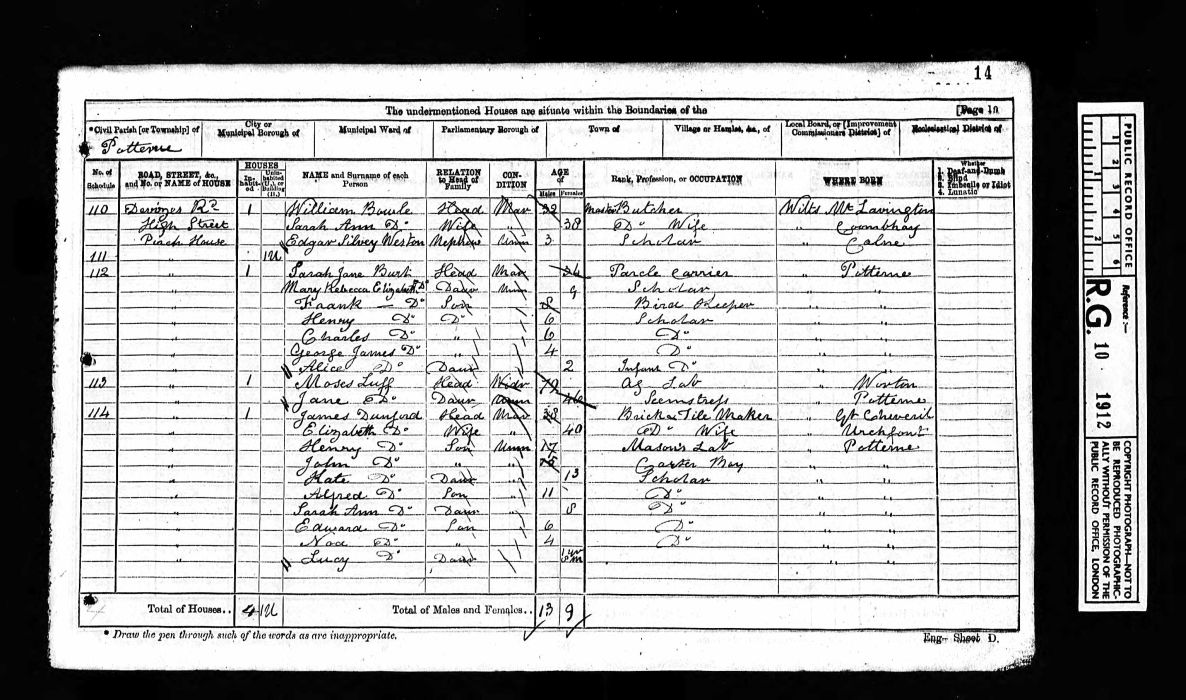 14
The undermentioned Houses are situate within the Boundaries of the [Page 10
*Civil Parish [or Township] of City or Municipal Borough of Municipal Ward of Parliamentary Borough of Town of Village or Hamlet, &c., of Local Board, or [Improvement Commissioners District] of Ecclesiastical District of
Potterne
No. of Schedule ROAD, STREET, &c., and No. or NAME of HOUSE HOUSES Inhabited Uninhabited (U.), or Building (B.) NAME and Surname of each Person RELATION to Head of Family CONDITION AGE of Males Females Rank, Profession, or OCCUPATION WHERE BORN Whether 1. Deaf-and-Dumb 2. Blind 3. Imbecile or Idiot 4. Lunatic
110 Devizes Rd 1 William Bowle Head Mar 32 Master Butcher Wilts Mt Lavington
High Street Sarah Ann Do Wife " 38 Do Wife "
House Edgar Silvey Weston Nephew Unm 3 Scholar " Calne
111 " 1U
112 " 1 Sarah Jane Burt Head Mar 34 Parcle Carrier " Potterne
" Mary Rebecca Elizabeth Do Daur Unm 9 Scholar " "
" Fraank Do Son 8 Bird Keeper " "
" Henry Do Do 6 Scholar " "
" Charles Do " 6 Do " "
" George James Do " 4 Do " "
" Alice Do Daur 2 Infant Do " "
113 " 1 Moses Luff Head Widr 79 Ag Lab " Worton
" Jane Do Daur Unm 46 Seemstress " Potterne
114 " 1 James Dunford Head Mar 38 Brick & Tile Maker " Gt Cheveril
" Elizabeth Do Wife " 40 Do Wife " Urchfont
" Henry Do Son Unm 17 Mason's Lab " Potterne
" John Do " " 15 Carter Boy " "
" Kate Do Daur " 13 Scholar " "
" Alfred Do Son " 11 Do " "
" Sarah Ann Do Daur " 8 Do " "
" Edward Do Son " 6 Do " "
" Noa Do " " 4 Do " "
" Lucy Do Daur " "
Total of Houses.. 4 1U Total of Males and Females.. 13 9
* Draw the pen through such of the words as are inappropriate.
Eng- Sheet D.
PUBLIC RECORD OFFICE
1 2 3 4 5 6
1 2
Reference :-
R.G. 10 1912
COPYRIGHT PHOTOGRAPH—NOT TO
BE REPRODUCED PHOTOGRAPHIC-
ALLY WITHOUT PERMISSION OF THE
PUBLIC RECORD OFFICE, LONDON